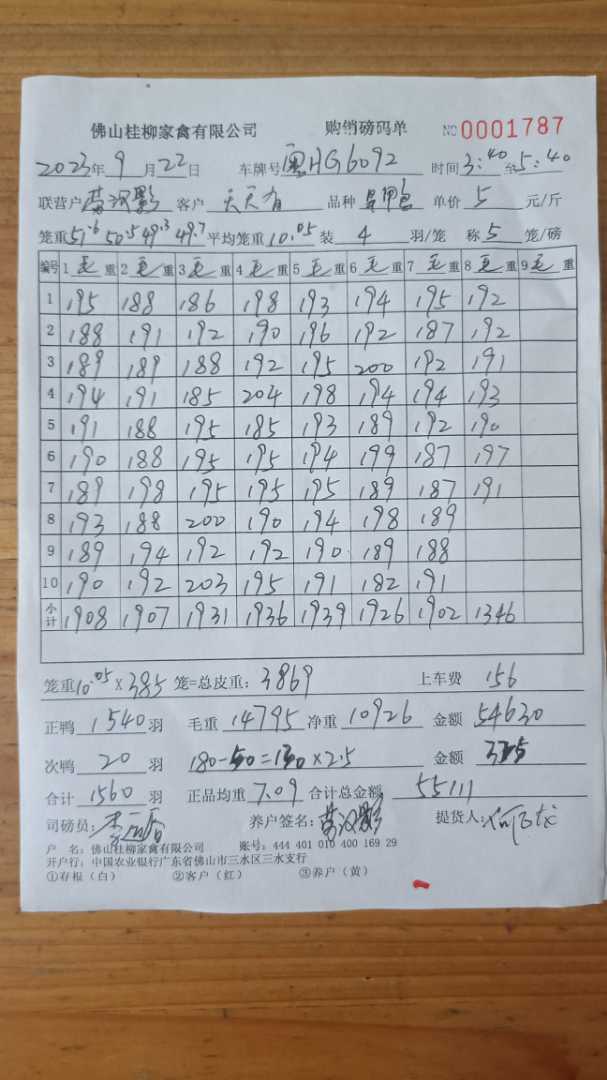 佛山桂柳家禽有限公司 购销磅码单 NO 0001787
2023年 9 月 22 日 车牌号 粤HG6092 时间 3:40 至 5:40
联营户 客户 天天有 品种 单价 5 元/斤
笼重 51.6 50.5 49.3 49.7 平均笼重 10.05 装 4 羽/笼 称 5 笼/磅
编号 1 毛 重 2 毛 重 3 毛 重 4 毛 重 5 毛 重 6 毛 重 7 毛 重 8 毛 重 9 毛 重
1 195 188 186 198 193 194 195 192
2 188 191 192 190 196 192 187 192
3 189 189 188 192 195 200 192 191
4 194 191 185 204 198 194 194 193
5 191 188 195 185 193 189 192 190
6 190 188 195 195 194 199 187 197
7 189 198 195 195 195 189 187 191
8 193 188 200 190 194 198 189
9 189 194 192 192 190 189 188
10 190 192 203 195 191 182 191
小计 1908 1907 1931 1936 1939 1926 1902 1346
笼重 10.05 × 385 笼=总皮重: 3869 上车费 156
正鸭 1540 羽 毛重 14795 净重 10926 金额 54630
次鸭 20 羽 180-50=130×2.5 金额 325
合计 1560 羽 正品均重 7.09 合计总金额 55111
司磅员: 养户签名: 提货人:
户 名: 佛山桂柳家禽有限公司 账号: 444 401 010 400 169 29
开户行: 中国农业银行广东省佛山市三水区三水支行
①存根(白) ②客户(红) ③养户(黄)